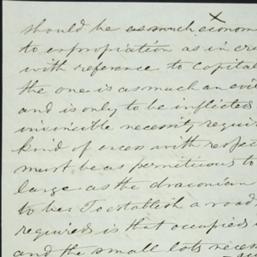 should be as much econom
to expropriation as in cre
with reference to capital
the one is as much an evil
and is only to be inflicted
invincible necessity requir
kind of excess with respec
must be as pernicious to
large as the draconian
to be. To establish a road
required is that occupied
and the small lots neces